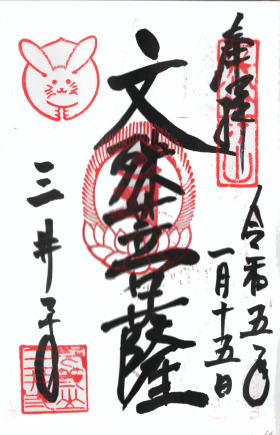 奉拝
令和五年
一月十五日
文殊菩薩
三井寺